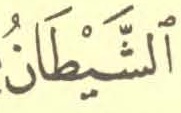 ٱلشَّيْطَانُ